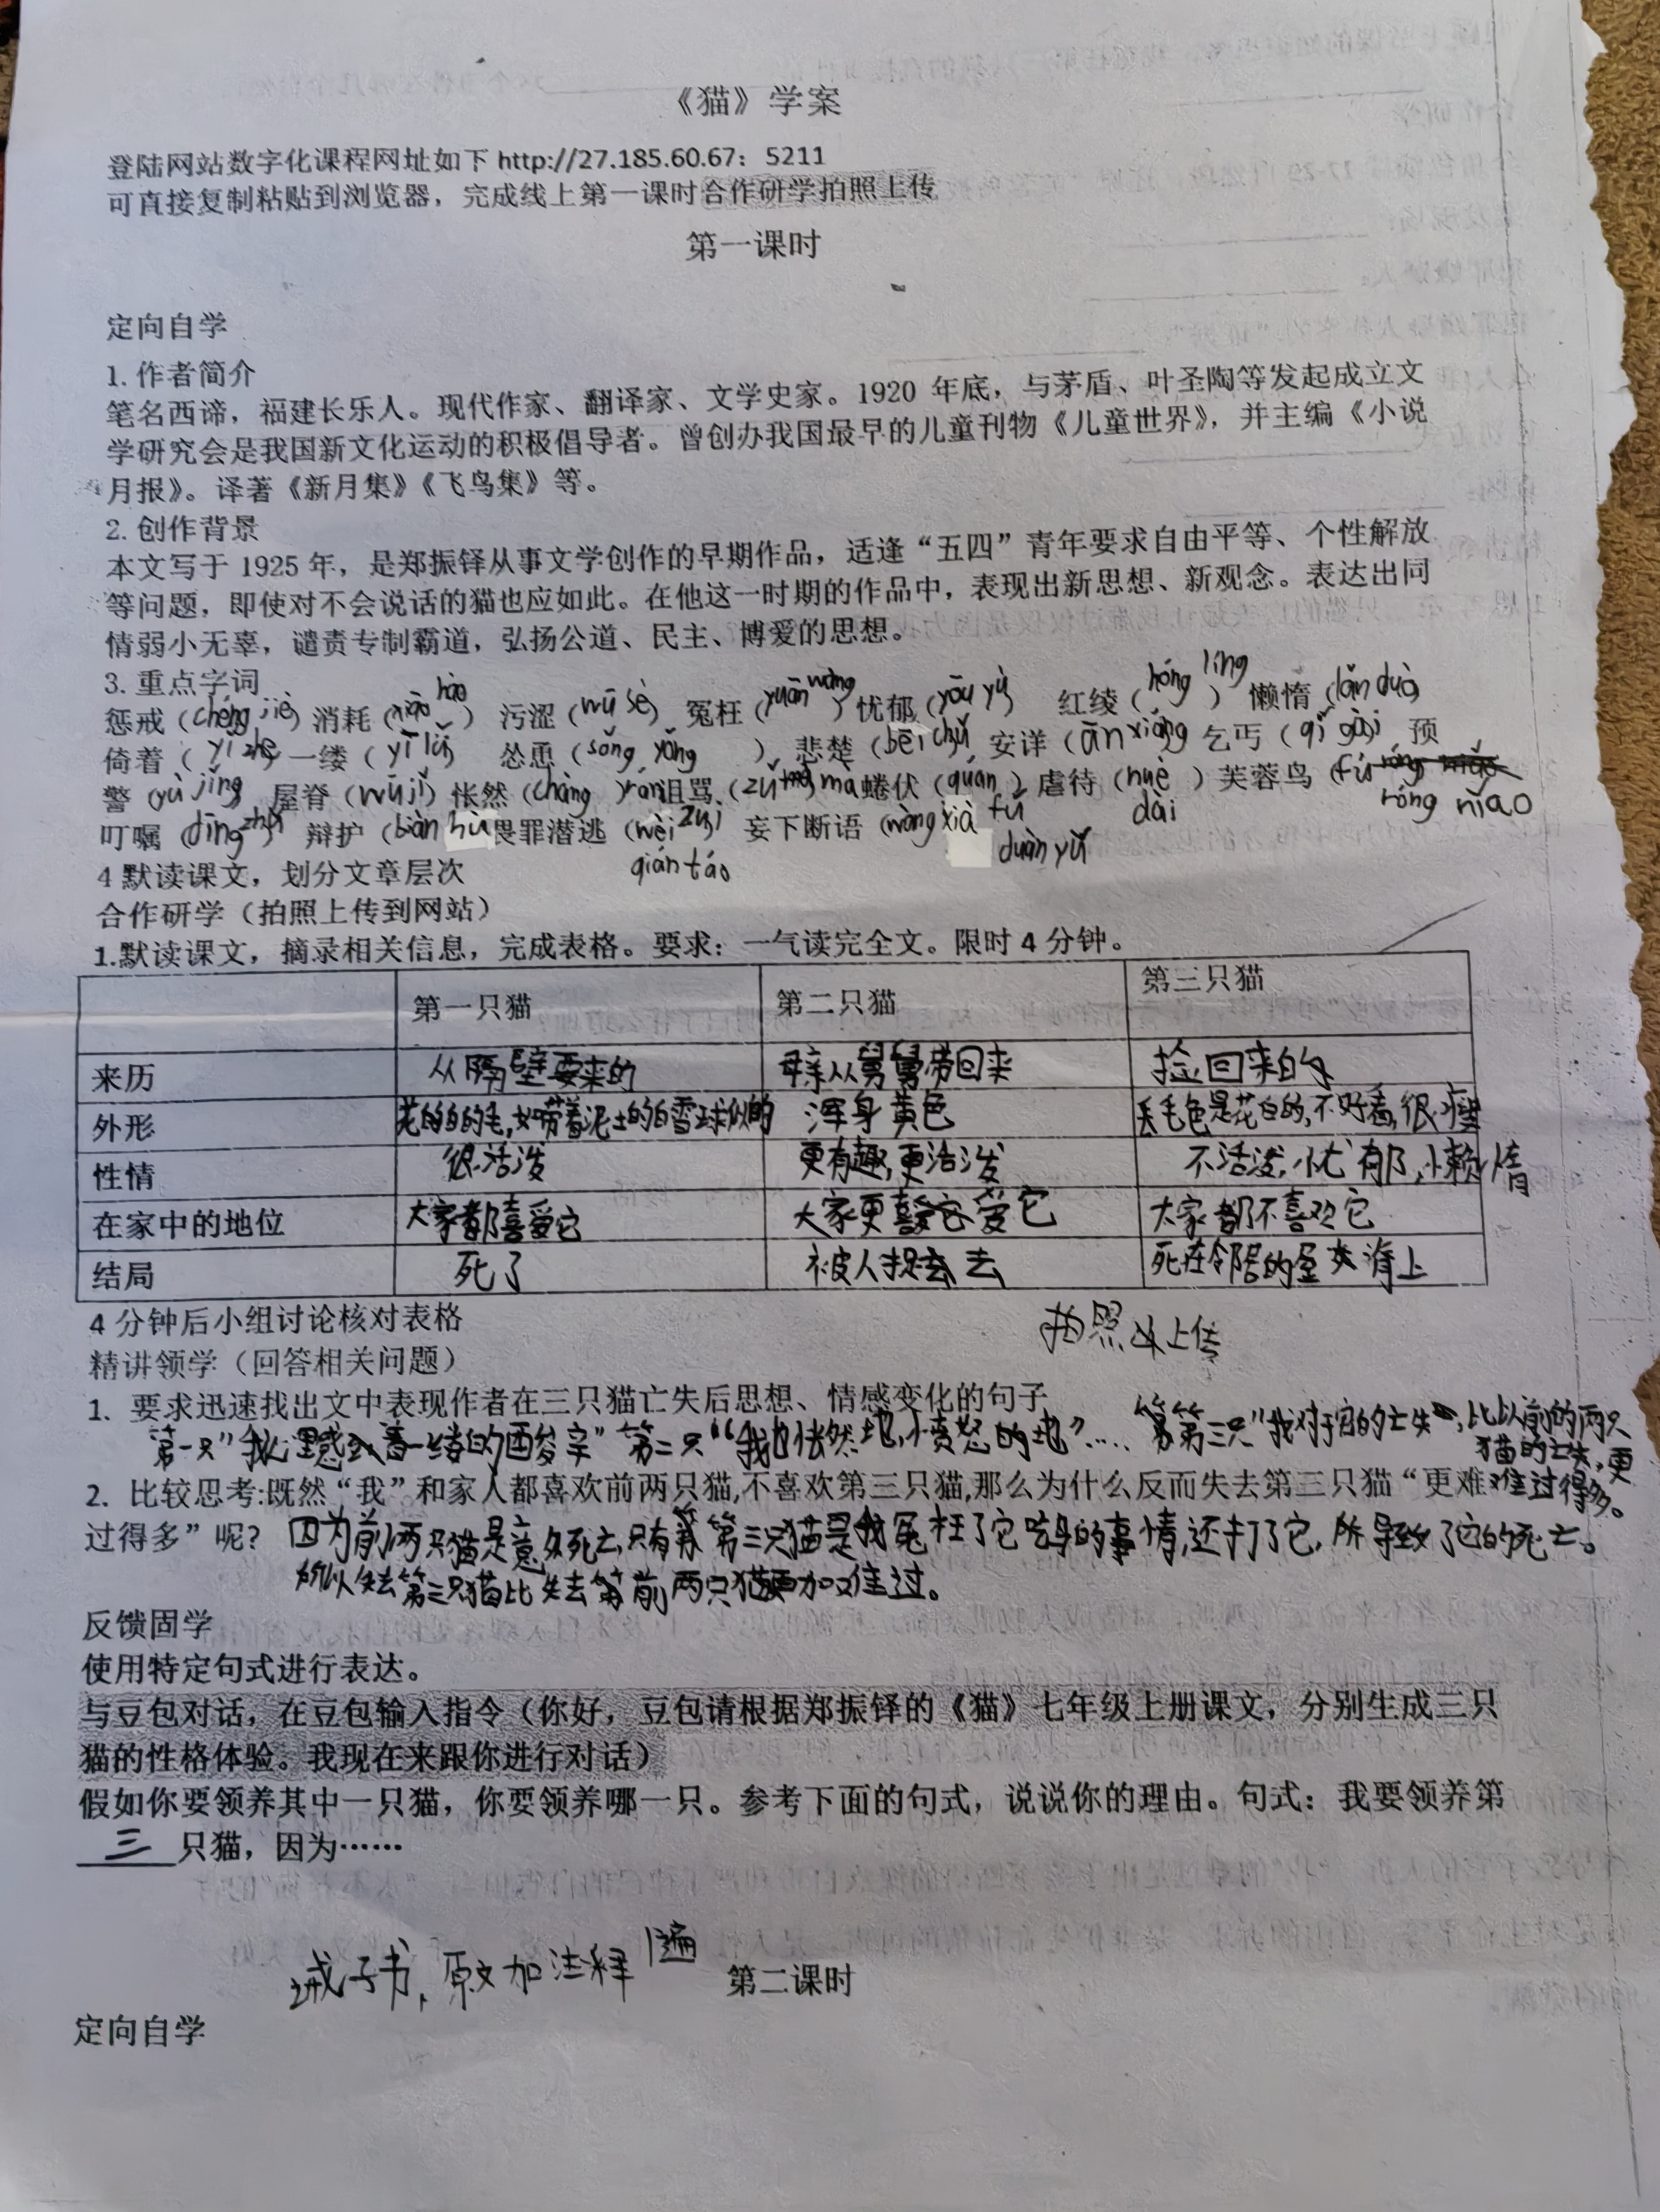 《猫》学案
登陆网站数字化课程网址如下 http://27.185.60.67：5211
可直接复制粘贴到浏览器，完成线上第一课时合作研学拍照上传
第一课时
定向自学
1. 作者简介
笔名西谛，福建长乐人。现代作家、翻译家、文学史家。1920 年底，与茅盾、叶圣陶等发起成立文
学研究会是我国新文化运动的积极倡导者。曾创办我国最早的儿童刊物《儿童世界》，并主编《小说
月报》。译著《新月集》《飞鸟集》等。
2. 创作背景
本文写于 1925 年，是郑振铎从事文学创作的早期作品，适逢“五四”青年要求自由平等、个性解放
等问题，即使对不会说话的猫也应如此。在他这一时期的作品中，表现出新思想、新观念。表达出同
情弱小无辜，谴责专制霸道，弘扬公道、民主、博爱的思想。
3. 重点字词
惩戒（chéng jiè）消耗（xiāo hào） 污涩（wū sè） 冤枉（yuān wǎng）忧郁（yōu yù） 红绫（hóng líng） 懒惰（lǎn duò）
倚着（yǐ zhe）一缕（yī lǚ） 怂恿（sǒng yǒng ），悲楚（bēi chǔ）安详（ān xiáng）乞丐（qǐ gài） 预
警（yù jǐng） 屋脊（wū jǐ）怅然（chàng rán）诅骂（zǔ mà）蜷伏（quán fú）虐待（nüè dài）芙蓉鸟（fú róng niǎo）
叮嘱（dīng zhǔ） 辩护（biàn hù）畏罪潜逃（wèi zuì qián táo） 妄下断语（wàng xià duàn yǔ）
4 默读课文，划分文章层次
合作研学（拍照上传到网站）
1.默读课文，摘录相关信息，完成表格。要求：一气读完全文。限时 4 分钟。
第一只猫 第二只猫 第三只猫
来历 从隔壁要来的 母亲从舅舅带回来 捡回来的
外形 花白的毛，如带着泥土的白雪球似的 浑身黄色 毛色是花白的，不好看，很瘦
性情 很活泼 更有趣，更活泼 不活泼，忧郁，懒惰
在家中的地位 大家都喜爱它 大家更喜爱它 大家都不喜欢它
结局 死了 被人捉去 死在邻居的屋脊上
4 分钟后小组讨论核对表格
拍照 上传
精讲领学（回答相关问题）
1. 要求迅速找出文中表现作者在三只猫亡失后思想、情感变化的句子
第一只“我心里感到着一缕的酸辛” 第二只“我也怅然地，愤怒的地”…… 第三只“我对于它的亡失，比以前的两只
猫的亡失，更
难过得多。
2. 比较思考:既然“我”和家人都喜欢前两只猫,不喜欢第三只猫,那么为什么反而失去第三只猫“更难
过得多”呢? 因为前两只猫是意外死亡，只有第三只猫是我冤枉了它吃鸟的事情，还打了它，所导致了它的死亡。
所以失去第三只猫比失去前两只猫更加难过。
反馈固学
使用特定句式进行表达。
与豆包对话，在豆包输入指令（你好，豆包请根据郑振铎的《猫》七年级上册课文，分别生成三只
猫的性格体验。我现在来跟你进行对话）
假如你要领养其中一只猫，你要领养哪一只。参考下面的句式，说说你的理由。句式：我要领养第
三 只猫，因为……
诫子书，原文加注释1遍
第二课时
定向自学